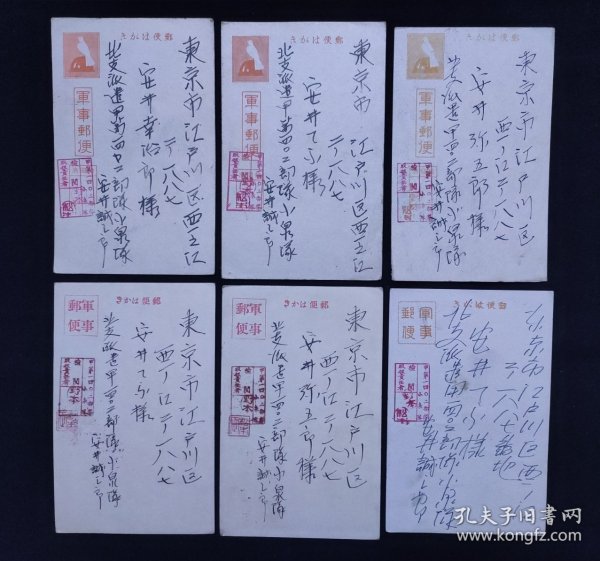 きかは便郵
軍事郵便
東京市江戸川区西一之江
二ノ一八八七
安井幸治郎様
北支派遣甲第一四〇二部隊小泉隊
安井誠三郎
きかは便郵
軍事郵便
東京市江戸川区西一之江
二ノ一八八七
安井てふ様
北支派遣甲第一四〇二部隊小泉隊
安井誠三郎
きかは便郵
軍事郵便
東京市江戸川区
西一ノ江二ノ一八八七
安井弥五郎様
北支派遣甲一四〇二部隊小泉隊
安井誠三郎
きかは便郵
軍事郵便
東京市江戸川区
西一ノ江二ノ一八八七
安井てふ様
北支派遣甲一四〇二部隊小泉隊
安井誠三郎
きかは便郵
軍事郵便
東京市江戸川区
西一ノ江二ノ一八八七
安井弥五郎様
北支派遣甲一四〇二部隊小泉隊
安井誠三郎
きかは便郵
軍事郵便
東京市江戸川区西一ノ江
二ノ一八八七番地
安井てふ様
北支派遣甲一四〇二部隊小泉隊
安井誠三郎
孔夫子旧书网
www.kongfz.com